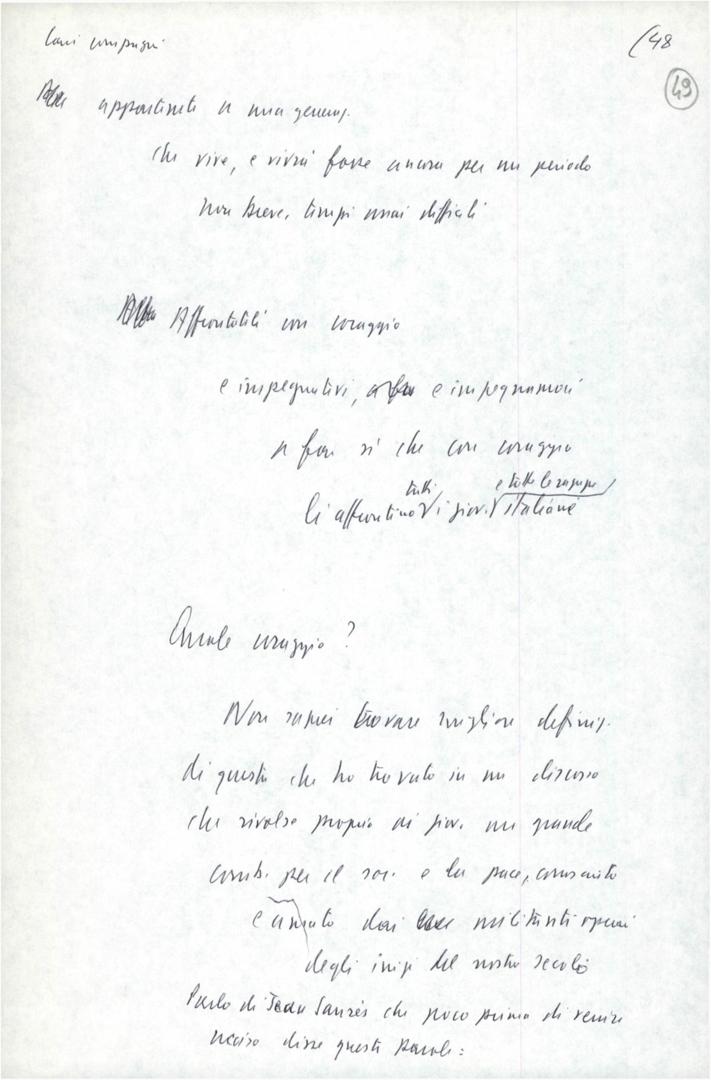 Cari compagni
(48
49
appartenete a una generaz.
che vive, e vivrà forse ancora per un periodo
non breve, tempi assai difficili
Affrontateli con coraggio
e impegnatevi, e impegnamoci
a far sì che con coraggio
tutti e tutte le ragazze
li affrontino i giov. italiani
Quale coraggio?
Non saprei trovare migliore definiz.
di questa che ho trovato in un discorso
che rivolse proprio ai giov. un grande
comb. per il soc. e la pace, conosciuto
e amato dai militanti operai
degli inizi del nostro secolo
Parlo di Jean Jaurès che poco prima di venire
ucciso disse queste parole: